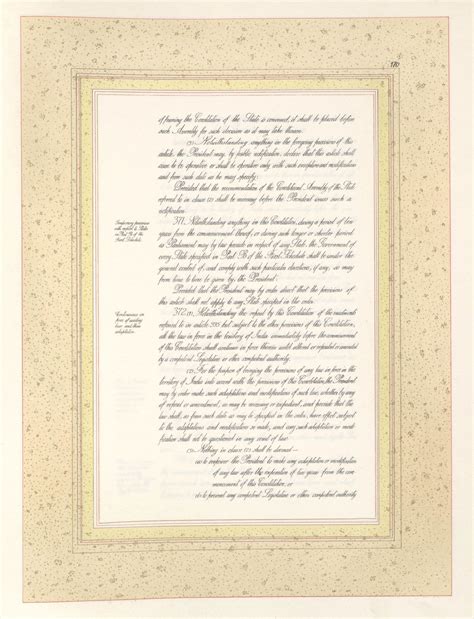 170
of framing the Constitution of the State is convened, it shall be placed before
such Assembly for such decision as it may take thereon.
(3) Notwithstanding anything in the foregoing provisions of this
article, the President may, by public notification, declare that this article shall
cease to be operative or shall be operative only with such exceptions and modifications
and from such date as he may specify:
Provided that the recommendation of the Constituent Assembly of the State
referred to in clause (2) shall be necessary before the President issues such a
notification.
Temporary provisions
with respect to States
in Part B of the
First Schedule.
371. Notwithstanding anything in this Constitution, during a period of ten
years from the commencement thereof, or during such longer or shorter period
as Parliament may by law provide in respect of any State, the Government of
every State specified in Part B of the First Schedule shall be under the
general control of, and comply with such particular directions, if any, as may
from time to time be given by, the President:
Provided that the President may by order direct that the provisions of
this article shall not apply to any State specified in the order.
Continuance in
force of existing
laws and their
adaptation.
372. (1) Notwithstanding the repeal by this Constitution of the enactments
referred to in article 395 but subject to the other provisions of this Constitution,
all the law in force in the territory of India immediately before the commencement
of this Constitution shall continue in force therein until altered or repealed or amended
by a competent Legislature or other competent authority.
(2) For the purpose of bringing the provisions of any law in force in the
territory of India into accord with the provisions of this Constitution, the President
may by order make such adaptations and modifications of such law, whether by way
of repeal or amendment, as may be necessary or expedient, and provide that the
law shall, as from such date as may be specified in the order, have effect subject
to the adaptations and modifications so made, and any such adaptation or modi-
fication shall not be questioned in any court of law.
(3) Nothing in clause (2) shall be deemed—
(a) to empower the President to make any adaptation or modification
of any law after the expiration of two years from the com-
mencement of this Constitution; or
(b) to prevent any competent Legislature or other competent authority